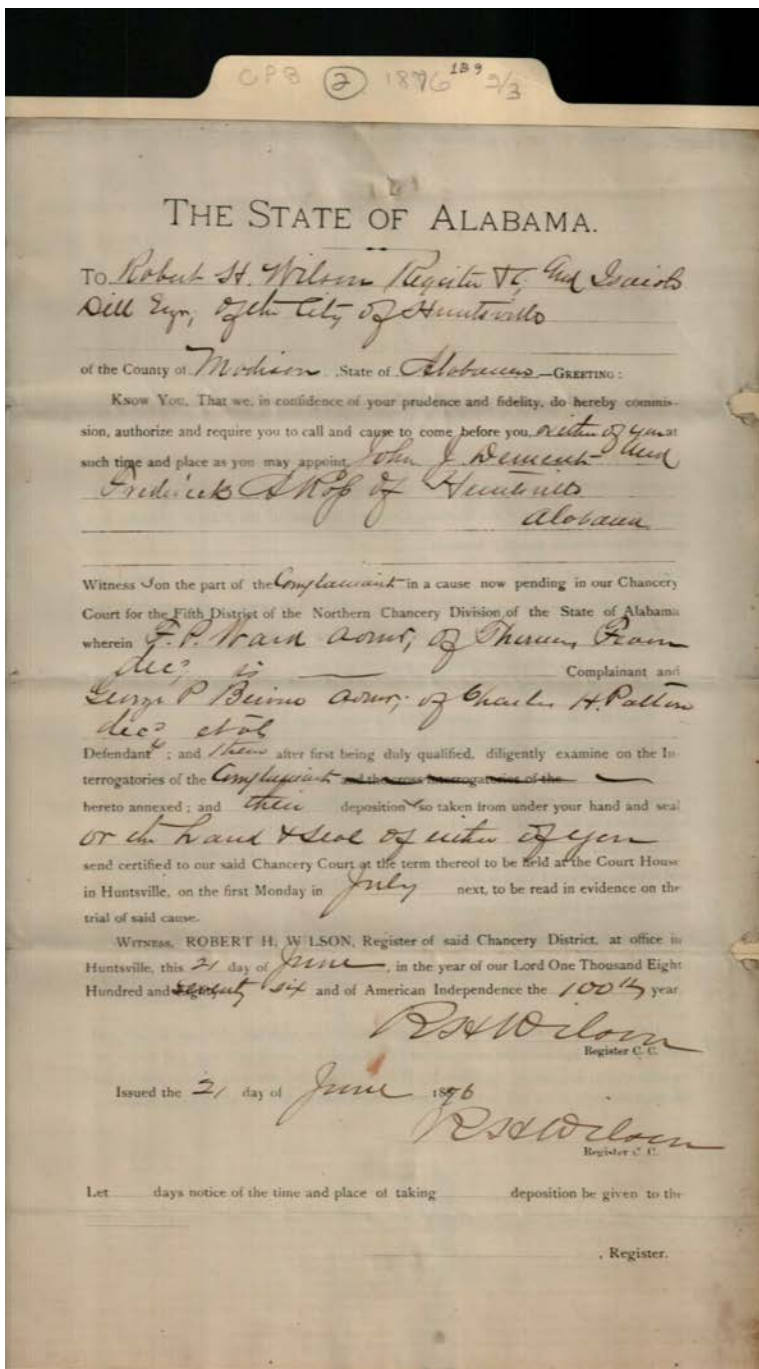 GPB 2 1876 189 2/3
181
THE STATE OF ALABAMA.
To Robert H. Wilson Register &c, and Isaiah
Dill Esqr, of the City of Huntsville
of the County of Madison, State of Alabama—GREETING:
KNOW YOU, That we, in confidence of your prudence and fidelity, do hereby commis-
sion, authorize and require you to call and cause to come before you, either of you at
such time and place as you may appoint, John J. Dement and
Frederick A Ross of Huntsville
Alabama
Witness s on the part of the Complainant in a cause now pending in our Chancery
Court for the Fifth District of the Northern Chancery Division of the State of Alabama
wherein F. P. Ward Admr, of
decd, is Complainant and
George P Beirne Admr, of Charles H. Patton
decd et al
Defendants; and them after first being duly qualified, diligently examine on the In-
terrogatories of the Complainant and the cross interrogatories of the
hereto annexed; and their depositions so taken from under your hand and seal
or the hand & seal of either of you
send certified to our said Chancery Court at the term thereof to be held at the Court House
in Huntsville, on the first Monday in July next, to be read in evidence on the
trial of said cause.
WITNESS, ROBERT H. WILSON, Register of said Chancery District, at office in
Huntsville, this 21 day of June, in the year of our Lord One Thousand Eight
Hundred and seventy six and of American Independence the 100th year
R H Wilson
Register C. C.
Issued the 21 day of June 1876
R H Wilson
Register C. C.
Let days notice of the time and place of taking deposition be given to the
, Register.